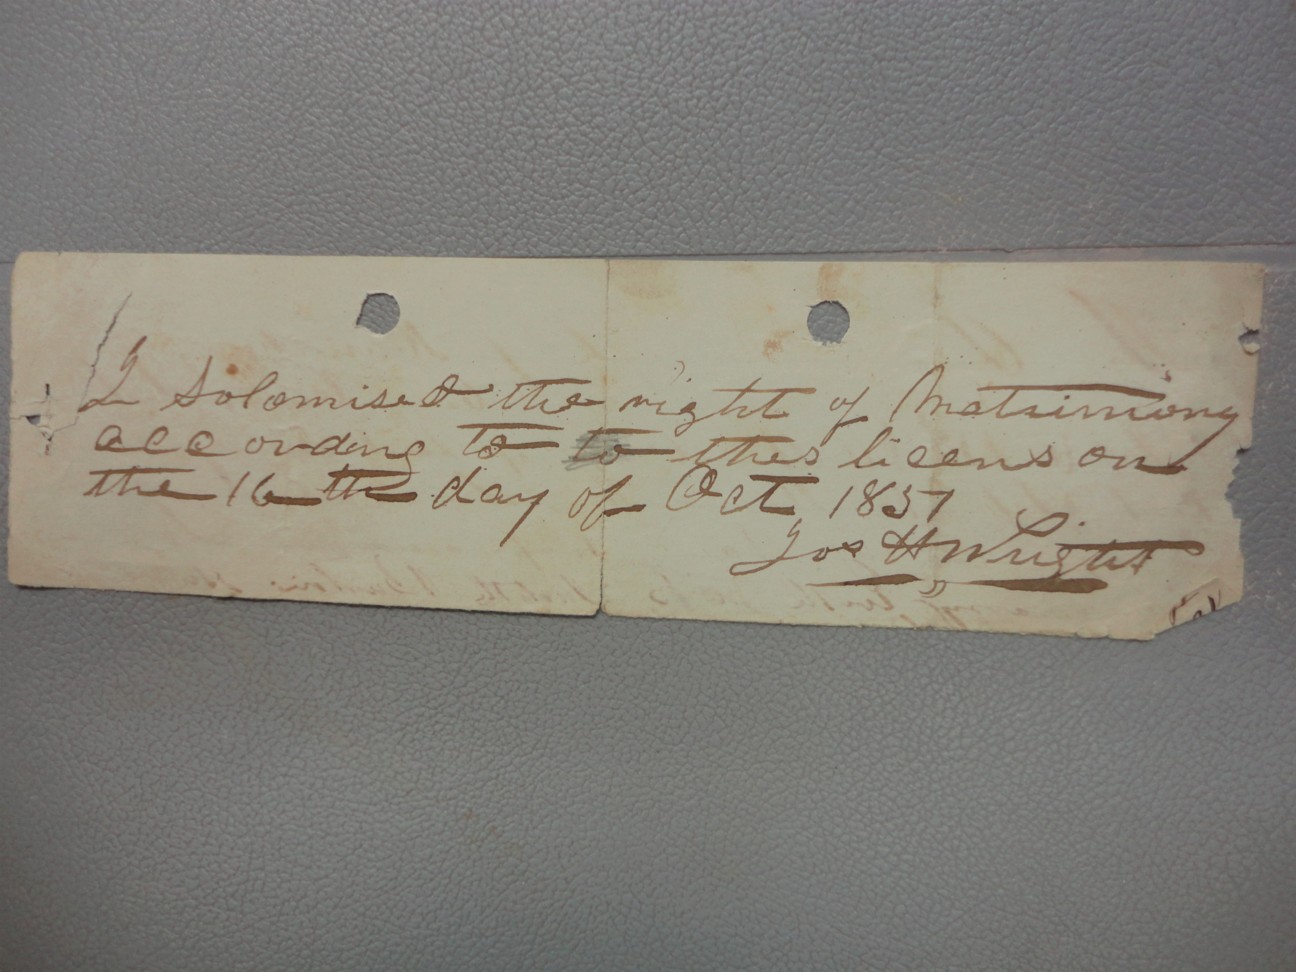 I Solomised the right of Matrimony
according to to thes licens on
the 16th day of Oct 1857
Jos H Wright